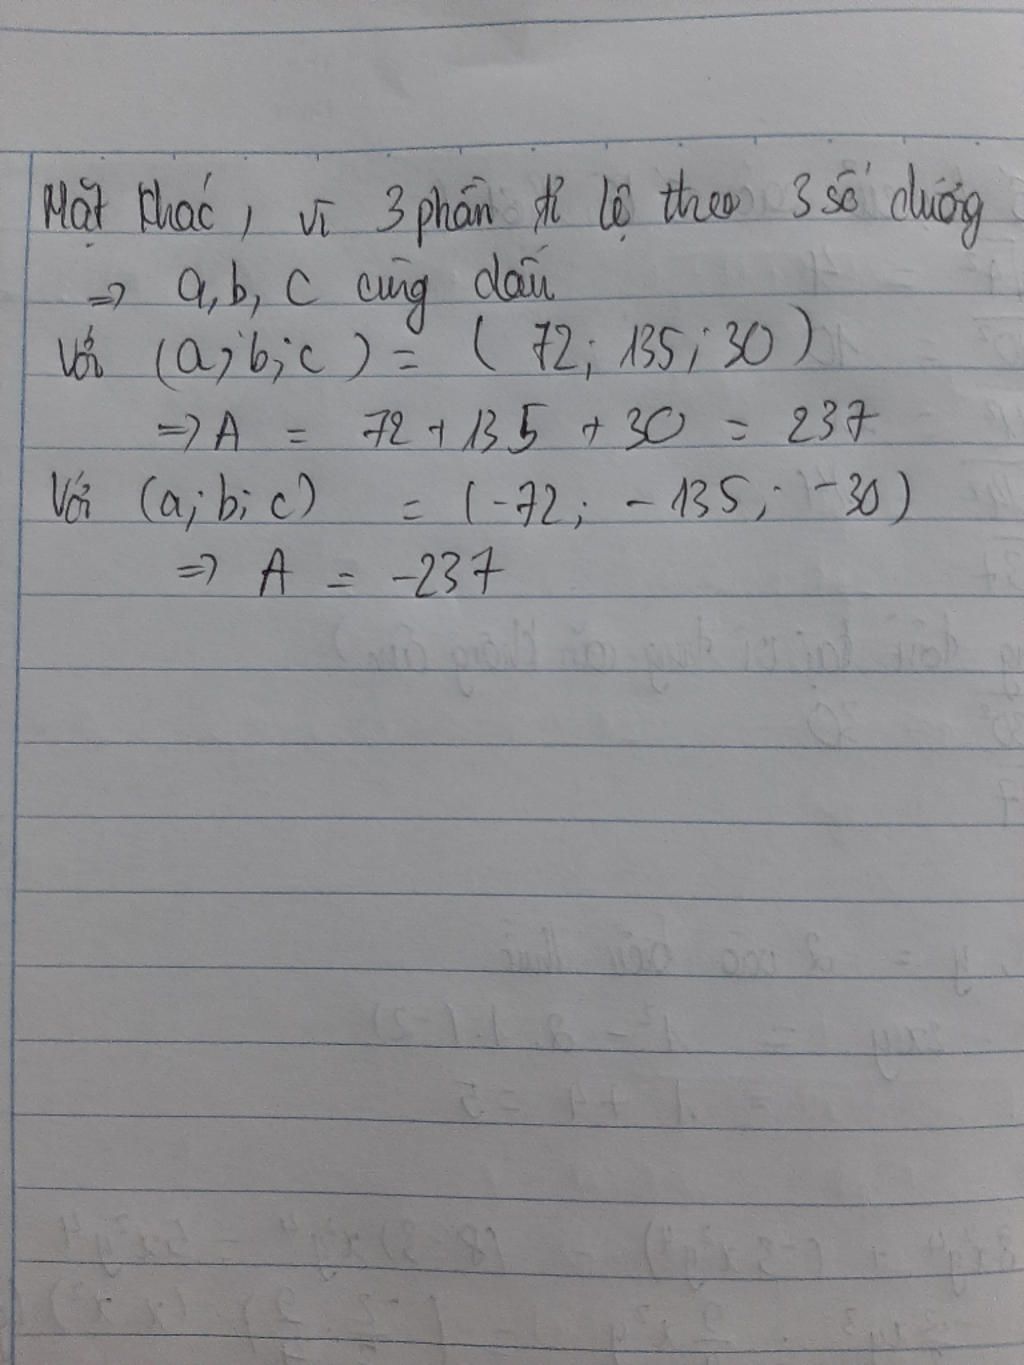 Mặt khác, vì 3 phần tỉ lệ theo 3 số dương
⇒ a, b, c cùng dấu
Với (a; b; c) = (72; 135; 30)
⇒ A = 72 + 135 + 30 = 237
Với (a; b; c) = (-72; -135; -30)
⇒ A = -237